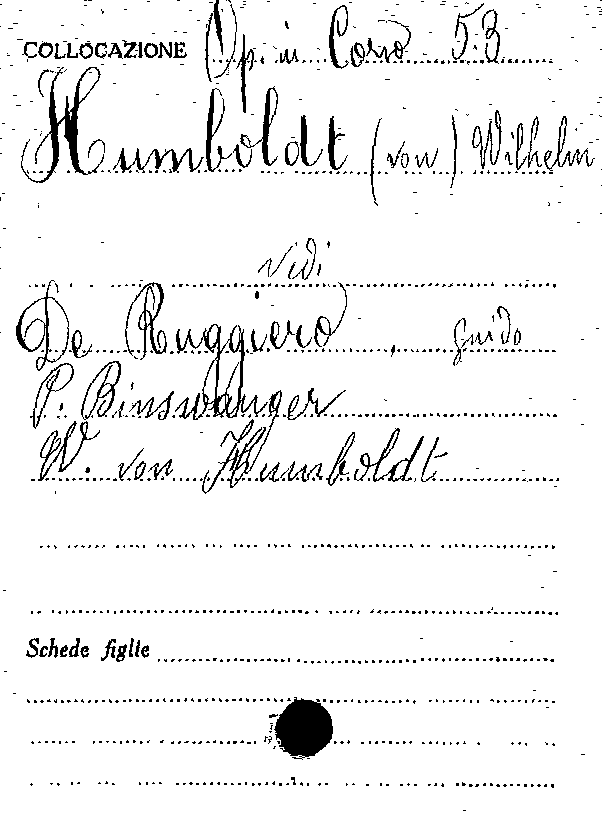 COLLOCAZIONE Op. in Corso 53
Humboldt (von) Wilhelm
Vidi
De Ruggiero, Guido
P. Binswanger
W. von Humboldt
Schede figlie